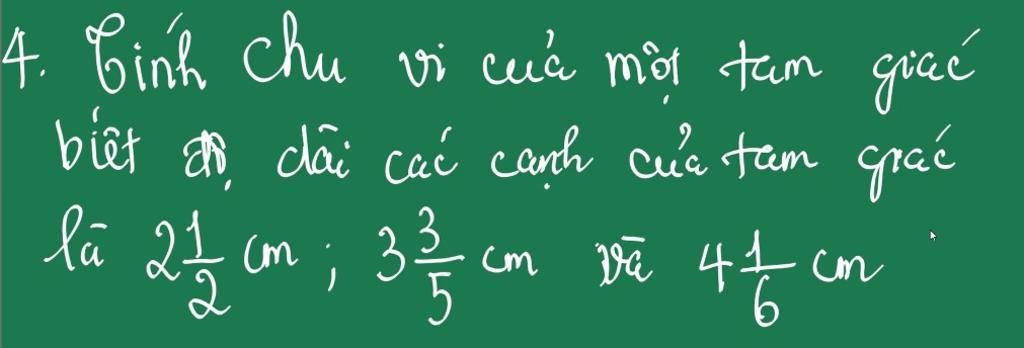 4. Tính chu vi của một tam giác
biết độ dài các cạnh của tam giác
là 2 1/2 cm ; 3 3/5 cm và 4 1/6 cm